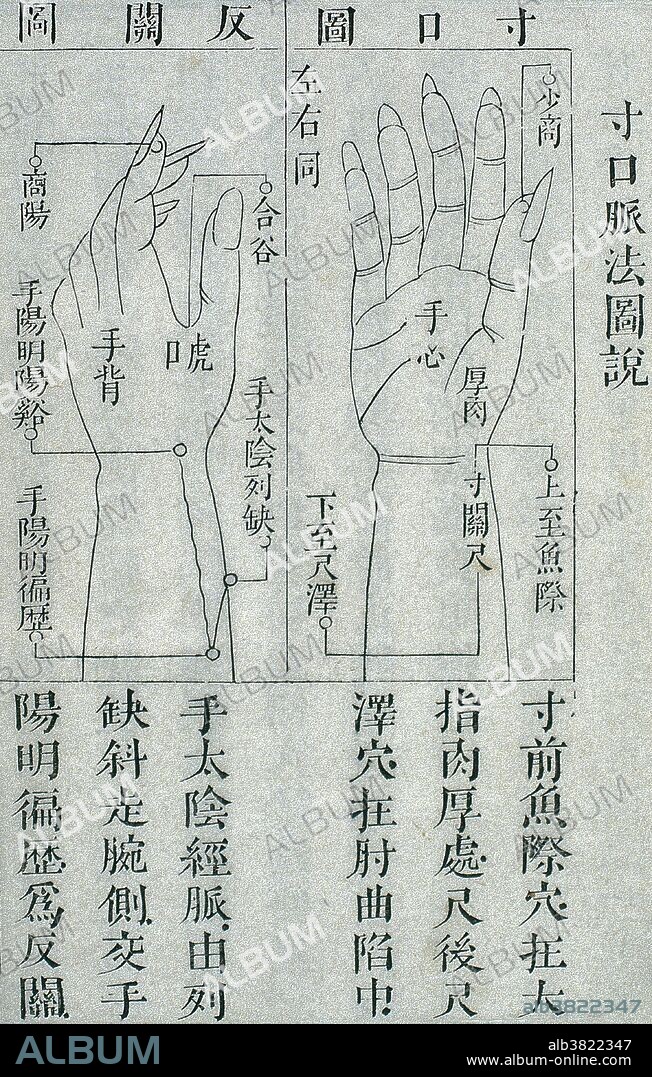 寸口脈法圖說
寸口圖
少商
左右同
手心
厚肉
寸關尺
上至魚際
下至尺澤
寸前魚際穴在大
指肉厚處尺後尺
澤穴在肘曲陷中
反關圖
合谷
商陽
虎口
手背
手陽明陽谿
手太陰列缺
手陽明徧歷
手太陰經脈由列
缺斜走腕側交手
陽明徧歷為反關
ALBUM
alb3822347
ALBUM
alb3822347
www.album-online.com